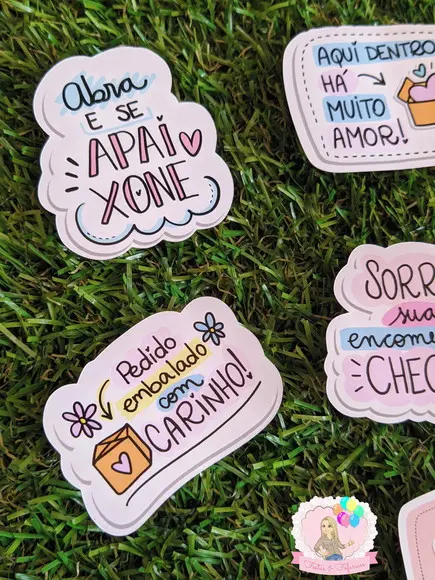 Abra
E SE
APAI
XONE
AQUI DENTRO
HÁ
MUITO
AMOR!
SORR
sua
encome
CHEG
Pedido
embalado
com
CARINHO!